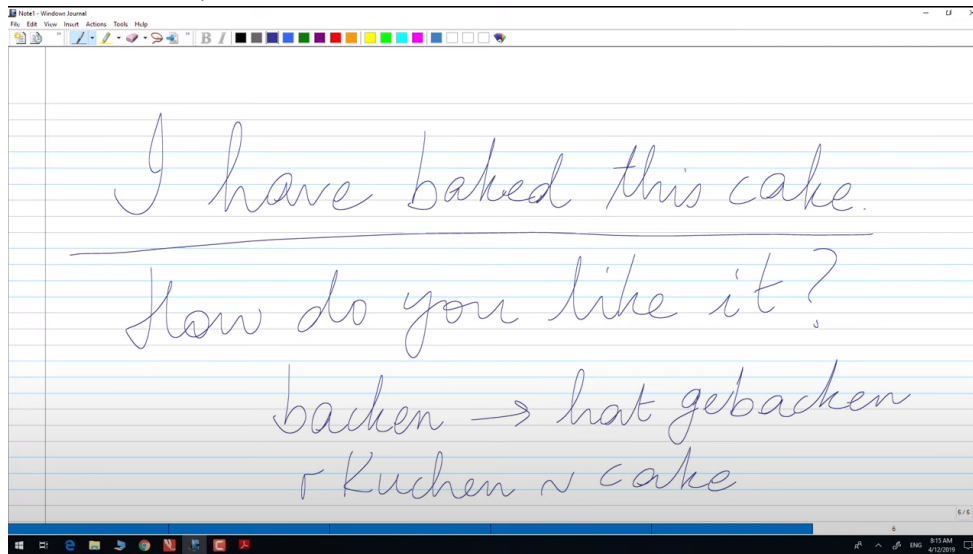 Note1 - Windows Journal
File Edit View Insert Actions Tools Help
B I
I have baked this cake.
How do you like it?
backen → hat gebacken
r Kuchen ~ cake
6/6
6
ENG 8:15 AM
4/12/2019